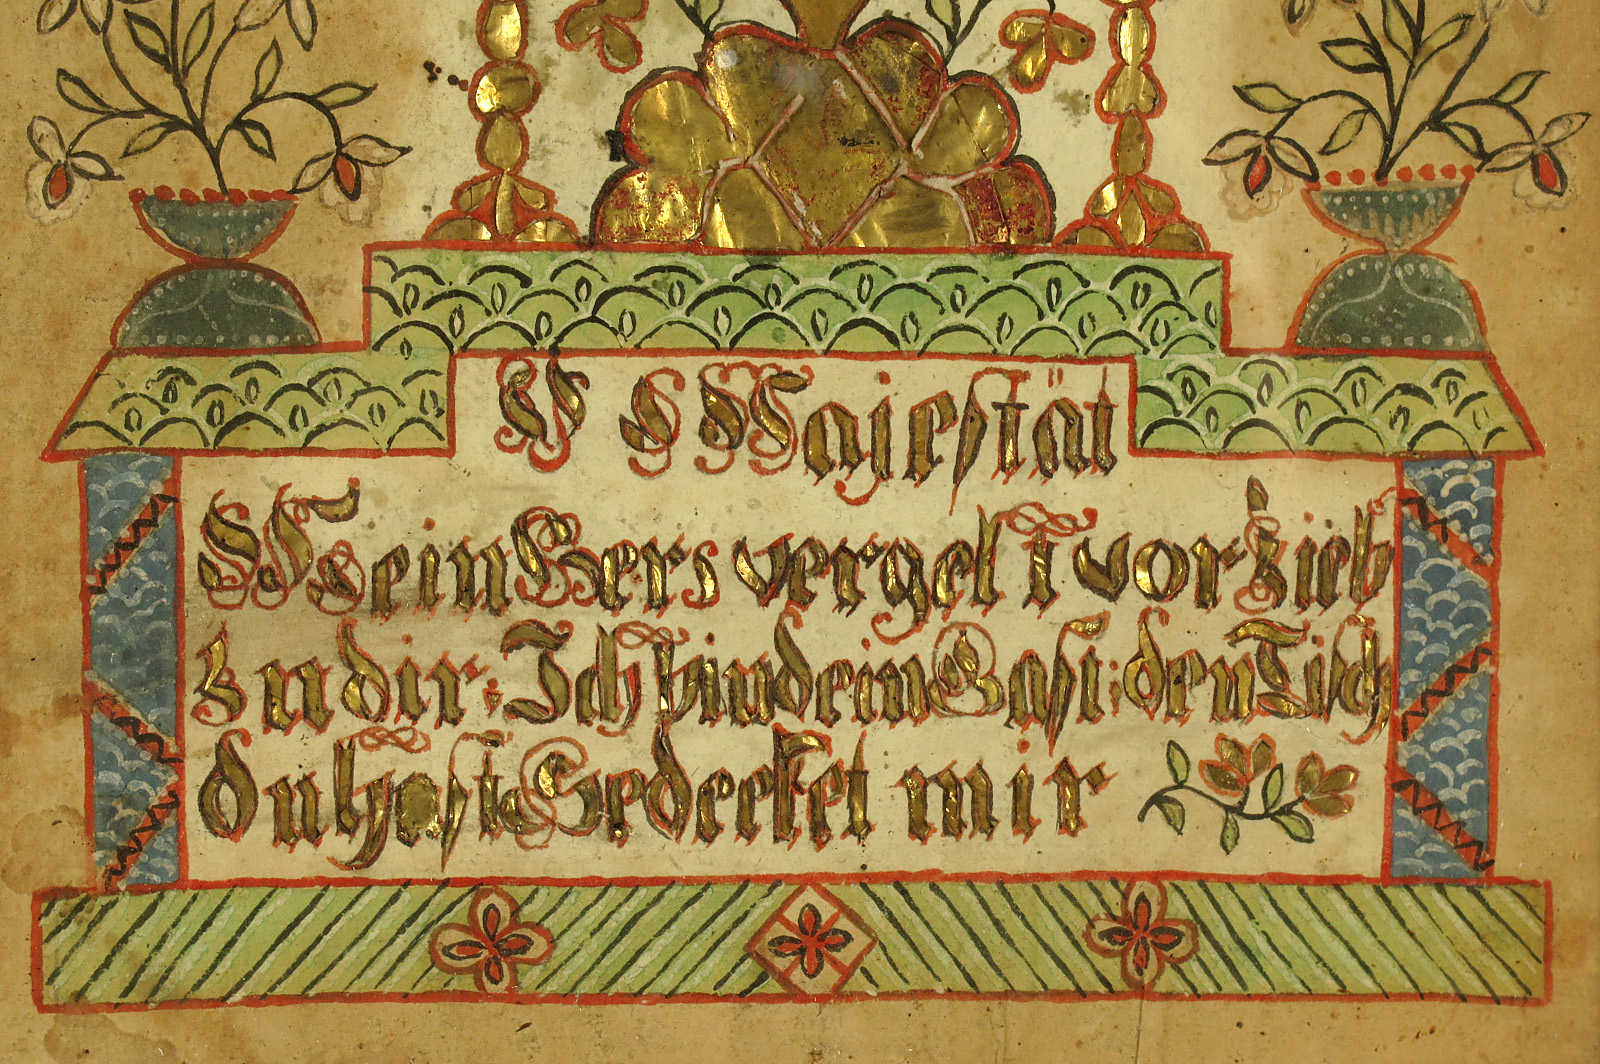 V S Majestät
Mein Hers vergelt vor Lieb
zu dir: Ich bin dein Gast: den Tisch
du hast Gedecket mir